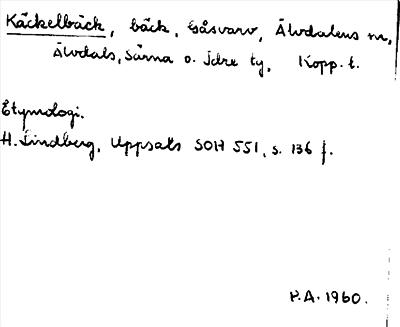 Käckelbäck, bäck, Gåsvarv, Älvdalens sn,
Älvdals, Särna o. Idre tg, Kopp. l.
Etymologi.
H. Lindberg, Uppsats SOH 551, s. 136 f.
P.A. 1960.